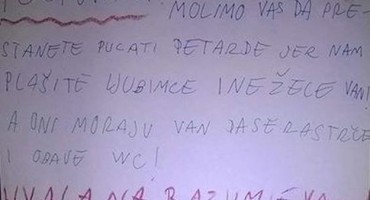 MOLIMO VAS DA PRE-
STANETE PUCATI PETARDE JER NAM
PLAŠITE LJUBIMCE I NEŽELE VAN!
A ONI MORAJU VAN DA SE RASTRČE
I OBAVE WC!
HVALA NA RAZUMIJEVA